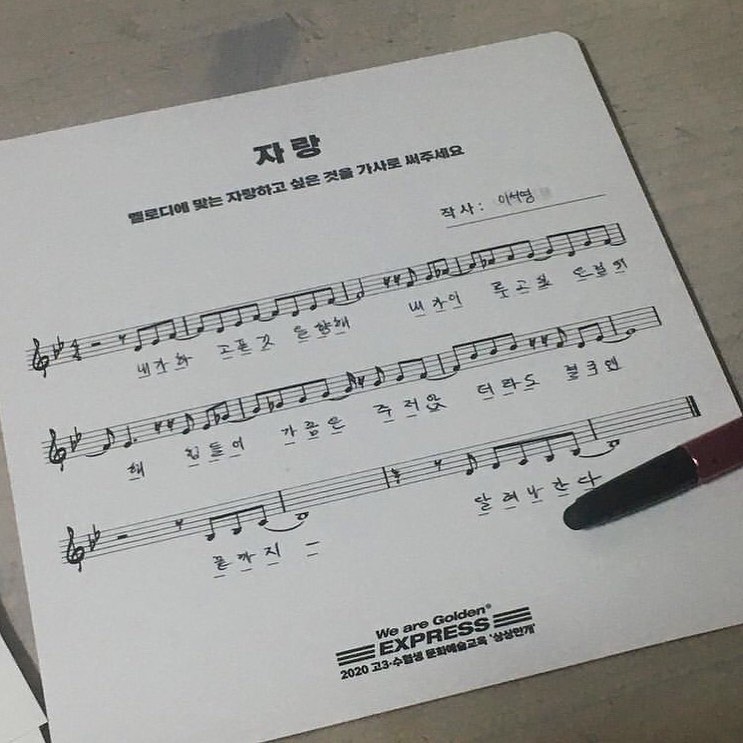 자랑
멜로디에 맞는 자랑하고 싶은 것을 가사로 써주세요
작사: 이서영
내가 하 고픈 것 을 향해 내 가 이 루 고
해 힘들어 가끔은 주저앉 더라도 결국엔
끝까지 -
달려나간다
We are Golden®
EXPRESS
2020 고3·수험생 문화예술교육 '상상만개'